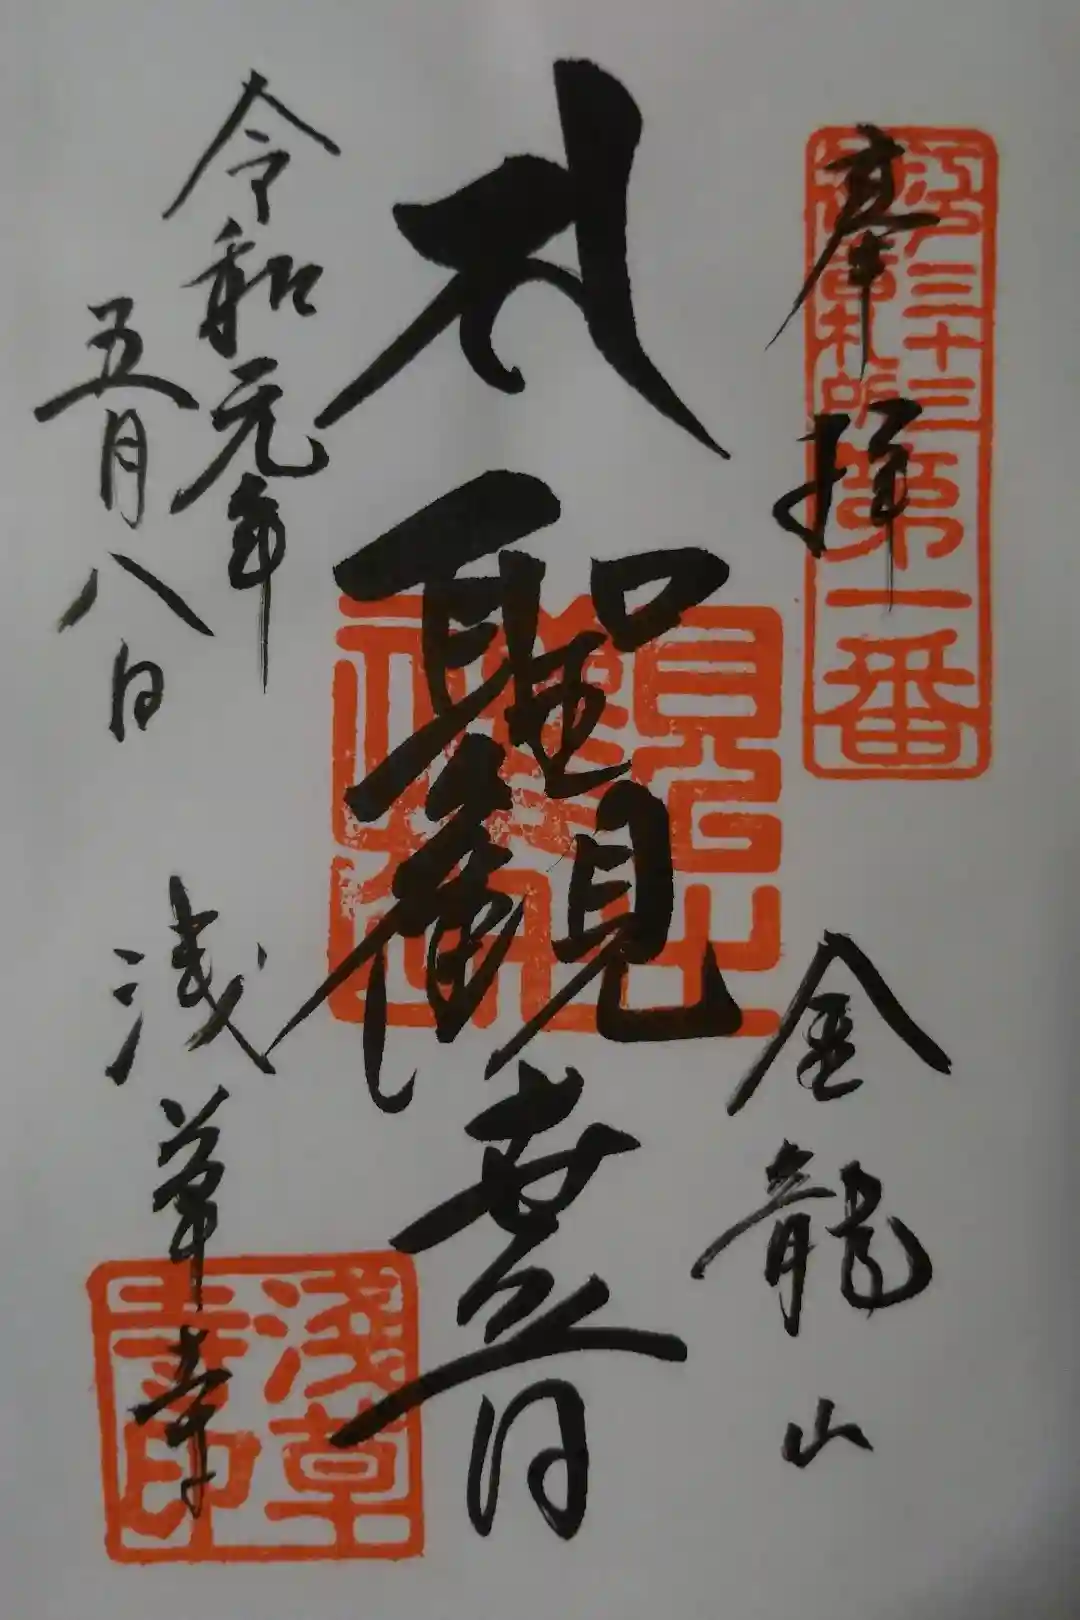 奉拝
江戸三十三
観音札所
第一番
金龍山
聖観世音
令和元年
五月八日
浅草寺
浅草
寺印